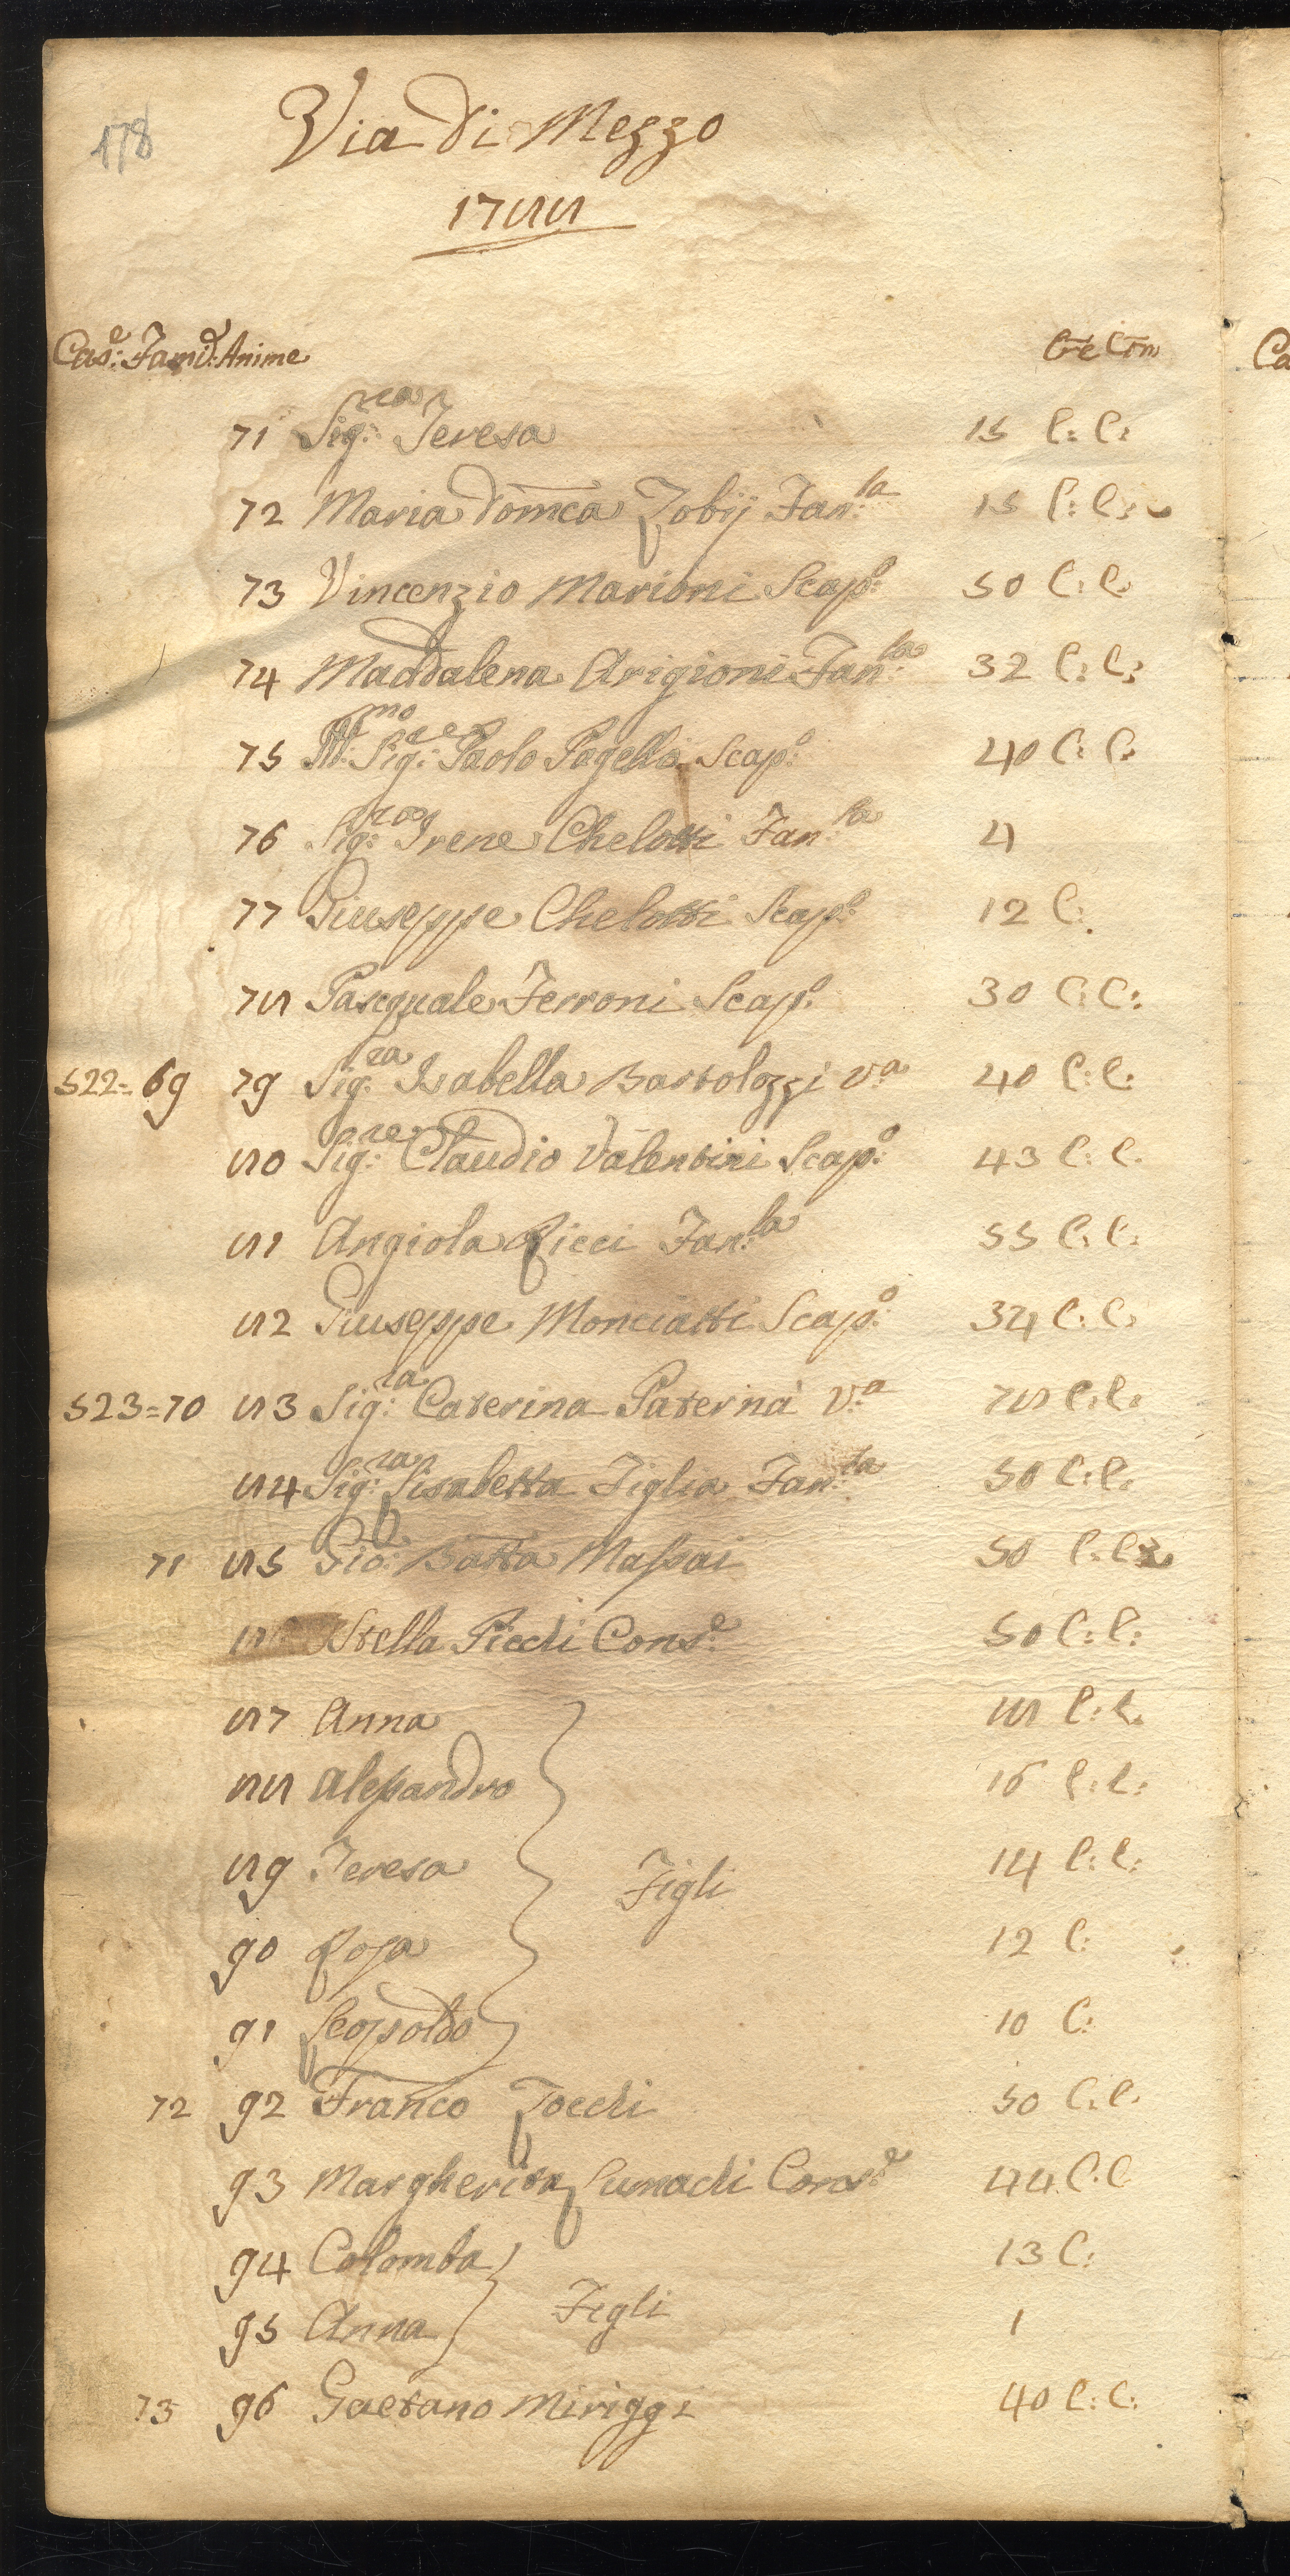 178
Via di Mezzo
1788
Cas.e: Fami.e: Anime Cre Com
71 Sig.ra: Teresa 15 C: C:
72 Maria Dom̄ca Zobij Fan.la 15 C: C:
73 Vincenzio Marioni Scap.o: 50 C: C:
74 Maddalena Arigioni Fan.la: 32 C: C:
75 Sig.re: Paolo Pagella Scap.o: 40 C: C:
76 Sig.ra: Irene Chelotti Fan.la 4
77 Giuseppe Chelotti Scap.o: 12 C:
78 Pasquale Ferroni Scap.o: 30 C: C:
522= 69 79 Sig.ra: Isabella Bartolozzi V.a 40 C: C:
80 Sig.re: Claudio Valentini Scap.o: 43 C: C:
81 Angiola Ricci Fan.la 55 C: C:
82 Giuseppe Monciatti Scap.o: 34 C: C:
523=70 83 Sig.ra: Caterina Paterna V.a 78 C: C:
84 Sig.ra: Lisabetta Figlia Fan.la 50 C: C:
71 85 Gio: Batta Massai 50 C: C:
Stella Picchi Cons.e: 50 C: C:
87 Anna 18 C: C:
88 Alessandro 16 C: C:
89 Teresa 14 C: C:
Figli
90 Rosa 12 C:
91 Leopoldo 10 C:
72 92 Franco Zocchi 50 C: C:
93 Margherita Lumachi Cons.e: 44 C: C
94 Colomba 13 C:
Figli
95 Anna 1
73 96 Gaetano Miriggi 40 C: C:
Ca